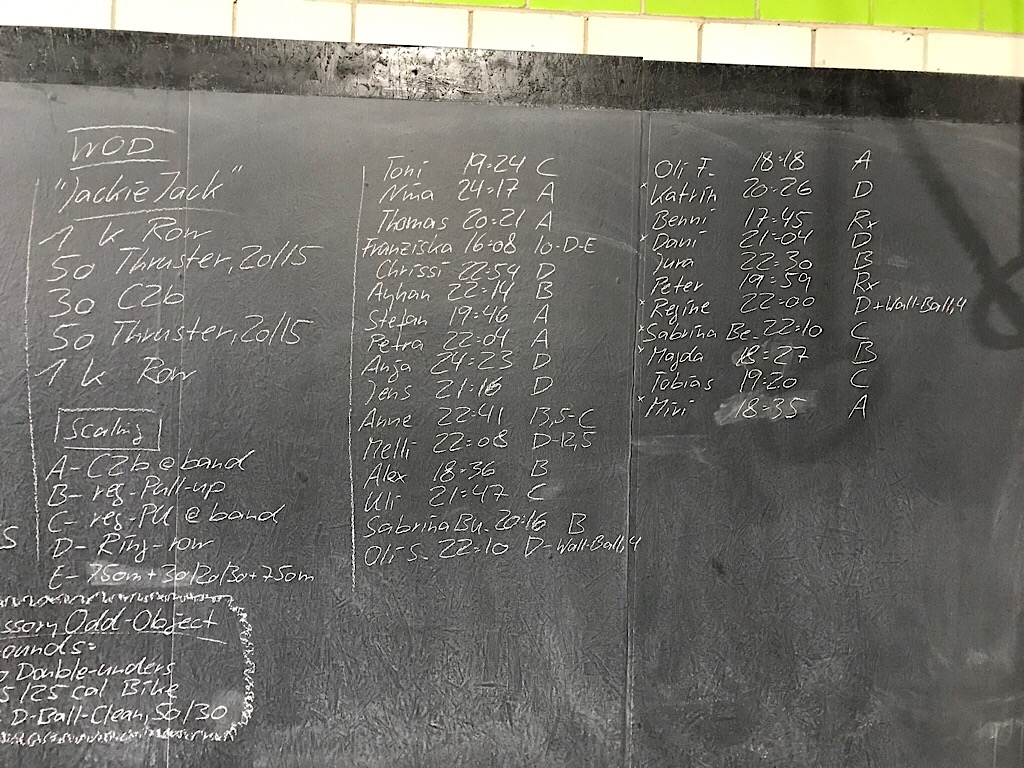 WOD
"Jackie Jack"
1 k Row
50 Thruster, 20/15
30 C2b
50 Thruster, 20/15
1 k Row
Scaling
A- C2b @ band
B- reg-Pull-up
C- reg-PU @ band
D- Ring-row
E- 750m + 30/20/30 + 750m
S
ssory Odd-Object
ounds:
Double-unders
5/25 cal Bike
D-Ball-Clean, 50/30
Toni 19:24 C
Nina 24:17 A
Thomas 20:21 A
Franziska 16:08 10-D-E
Chrissi 22:54 D
Ayhan 22:14 B
Stefan 19:46 A
Petra 22:04 A
Anja 24:23 D
Jens 21:16 D
Anne 22:41 13,5-C
Melli 22:08 D-12,5
Alex 18:36 B
Uli 21:47 C
Sabrina Bu. 20:16 B
Oli S. 22:10 D-Wall-Ball, 4
Oli F. 18:18 A
*Katrin 20:26 D
Benni 17:45 Rx
*Dani 21:04 D
Jura 22:30 B
Peter 19:59 Rx
*Regine 22:00 D+Wall-Ball, 4
*Sabrina Be. 22:10 C
*Majda 18:27 B
Tobias 19:20 C
*Mini 18:35 A